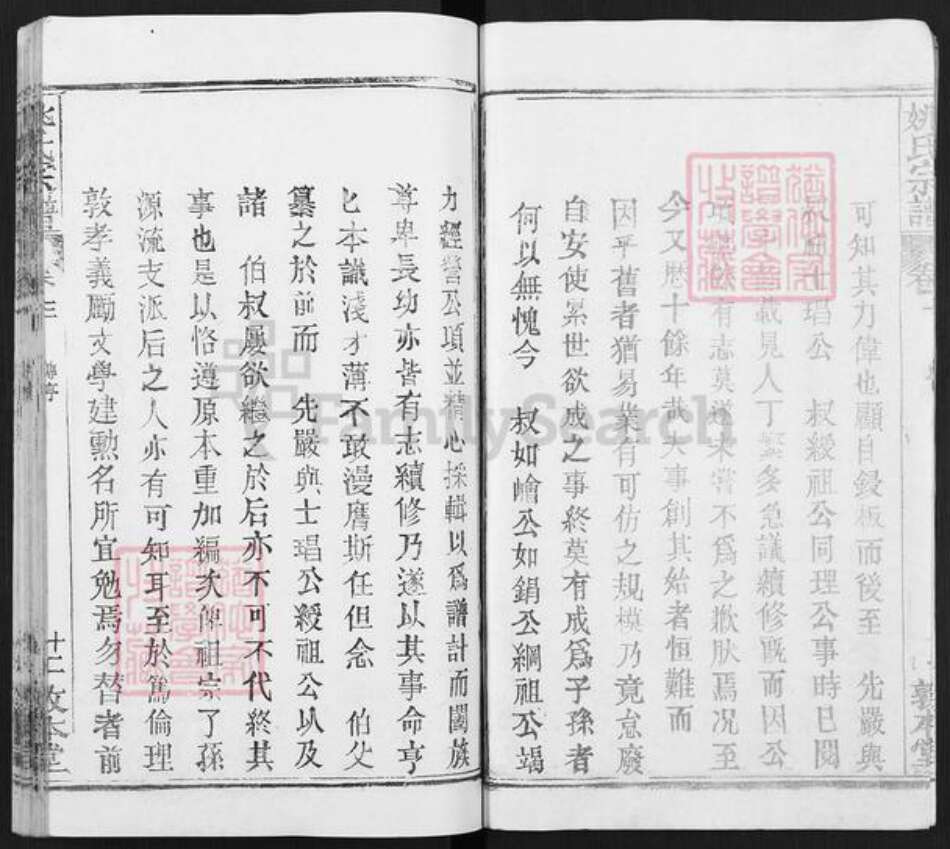 姚氏宗譜
可知其力偉也顯自鋟板而後至 先嚴與
士琩公 叔綬祖公同理公事時已閱
載見人丁繁多急議續修既而因公
有志莫遂未嘗不爲之歉肰焉况至
今又歷十餘年哉大事創其始者恒難而
因乎舊者猶易業有可仿之規模乃竟怠廢
自安使累世欲成之事終莫有成爲子孫者
何以無愧今 叔如嶒公如錦公綱祖公竭
敦本堂
力經營公項並精心採輯以爲譜計而闔族
尊卑長幼亦皆有志續修乃遂以其事命亨
七本識淺才薄不敢漫膺斯任但念 伯父
纂之於前而 先嚴與士琩公綬祖公以及
諸 伯叔屢欲繼之於后亦不可不代終其
事也是以恪遵原本重加編次俾祖宗了孫
源流支派后之人亦有可知耳至於篤倫理
敦孝義勵文學建勲名所宜勉焉勿替者前
十二敦本堂
FamilySearch